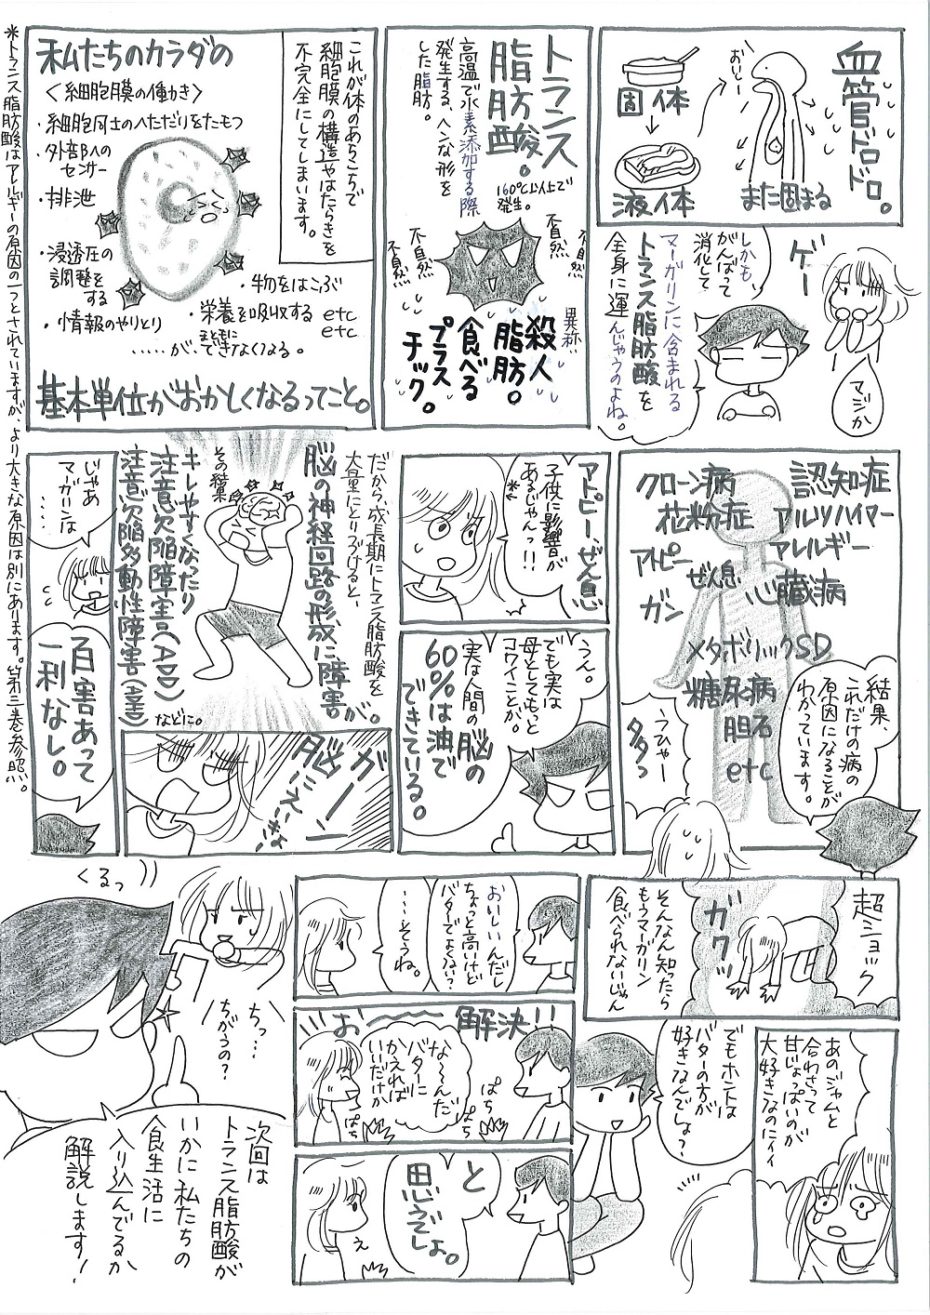 血管ドロドロ。
おりゃー
固体
液体
また固まる
ゲー
マジか
しかも、
がんばって
消化して
マーガリンに含まれる
トランス脂肪酸を
全身に運んじゃうのよね。
トランス
脂肪酸。
高温で水素添加する際
発生する、ヘンな形を
した脂肪。
160℃以上で
発生。
不自然
不自然
不自然
不自然
異称…
殺人
脂肪。
食べる
プラス
チック。
これが体のあちこちで
細胞膜の構造やはたらきを
不完全にしてしまいます。
私たちのカラダの
〈細胞膜の働き〉
・細胞同士のへだたりをたもつ
・外部への
センサー
・排泄
・浸透圧の
調整を
する
・情報のやりとり
・物をはこぶ
・栄養を吸収する etc
etc
……が、まともにできなくなる。
基本単位がおかしくなるってこと。
*トランス脂肪酸はアレルギーの原因の一つとされていますが、より大きな原因は別にあります。第三巻参照。
認知症
クローン病
アルツハイマー
花粉症
アレルギー
アトピー
ぜん息
心臓病
ガン
メタボリックSD
糖尿病
胆石
etc
結果、
これだけの病の
原因になることが
わかっています。
うひゃー
多っ
アトピー、ぜん息
子供に影響が
あるやんっ!!
*
うん。
でも実は
母としてもっと
コワイことが。
実は人間の脳の
60%は油で
できている。
だから、成長期にトランス脂肪酸を
大量にとりつづけると、
脳の神経回路の形成に障害が。
その結果
キレやすくなったり
注意欠陥障害(ADD)
注意欠陥多動性障害(ADHD)
などに。
ガーン
脳にえーきょー
じゃあ
マーガリンは
……
百害あって
一利なし。
超ショック
ガクッ
そんなん知ったら
もうマーガリン
食べられないじゃん
あのジャムと
合わさって
甘じょっぱいのが
大好きなのにィィ
でもホントは
バターの方が
好きなんでしょ?
おいしいんだし
ちょっと高いけど
バターでよくない?
……そうね。
解決!!
お〜〜
な〜んだ
バターに
かえれば
いいだけか
ぱち
ぱち
ぱち
と
思うでしょ。
え
くるっ
ちっ…
ちがうの?
次回は
トランス脂肪酸が
いかに私たちの
食生活に
入り込んでるか
解説します!